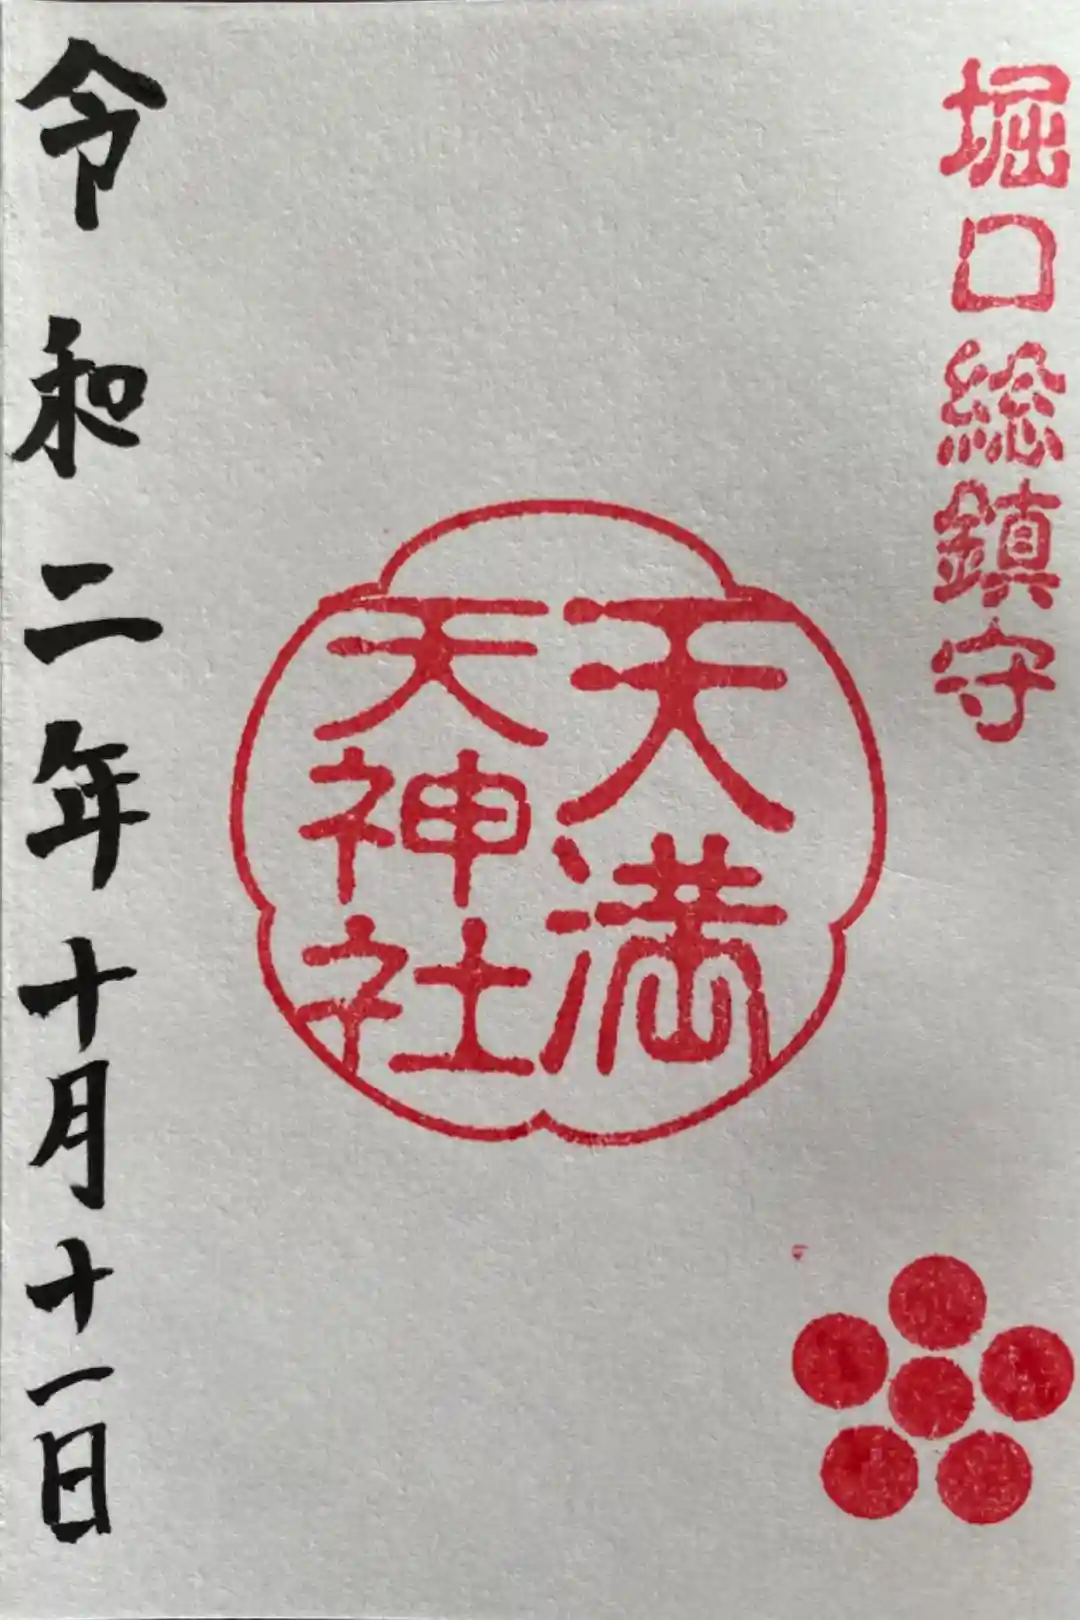 堀口総鎮守
天満
天神社
令和二年十月十一日